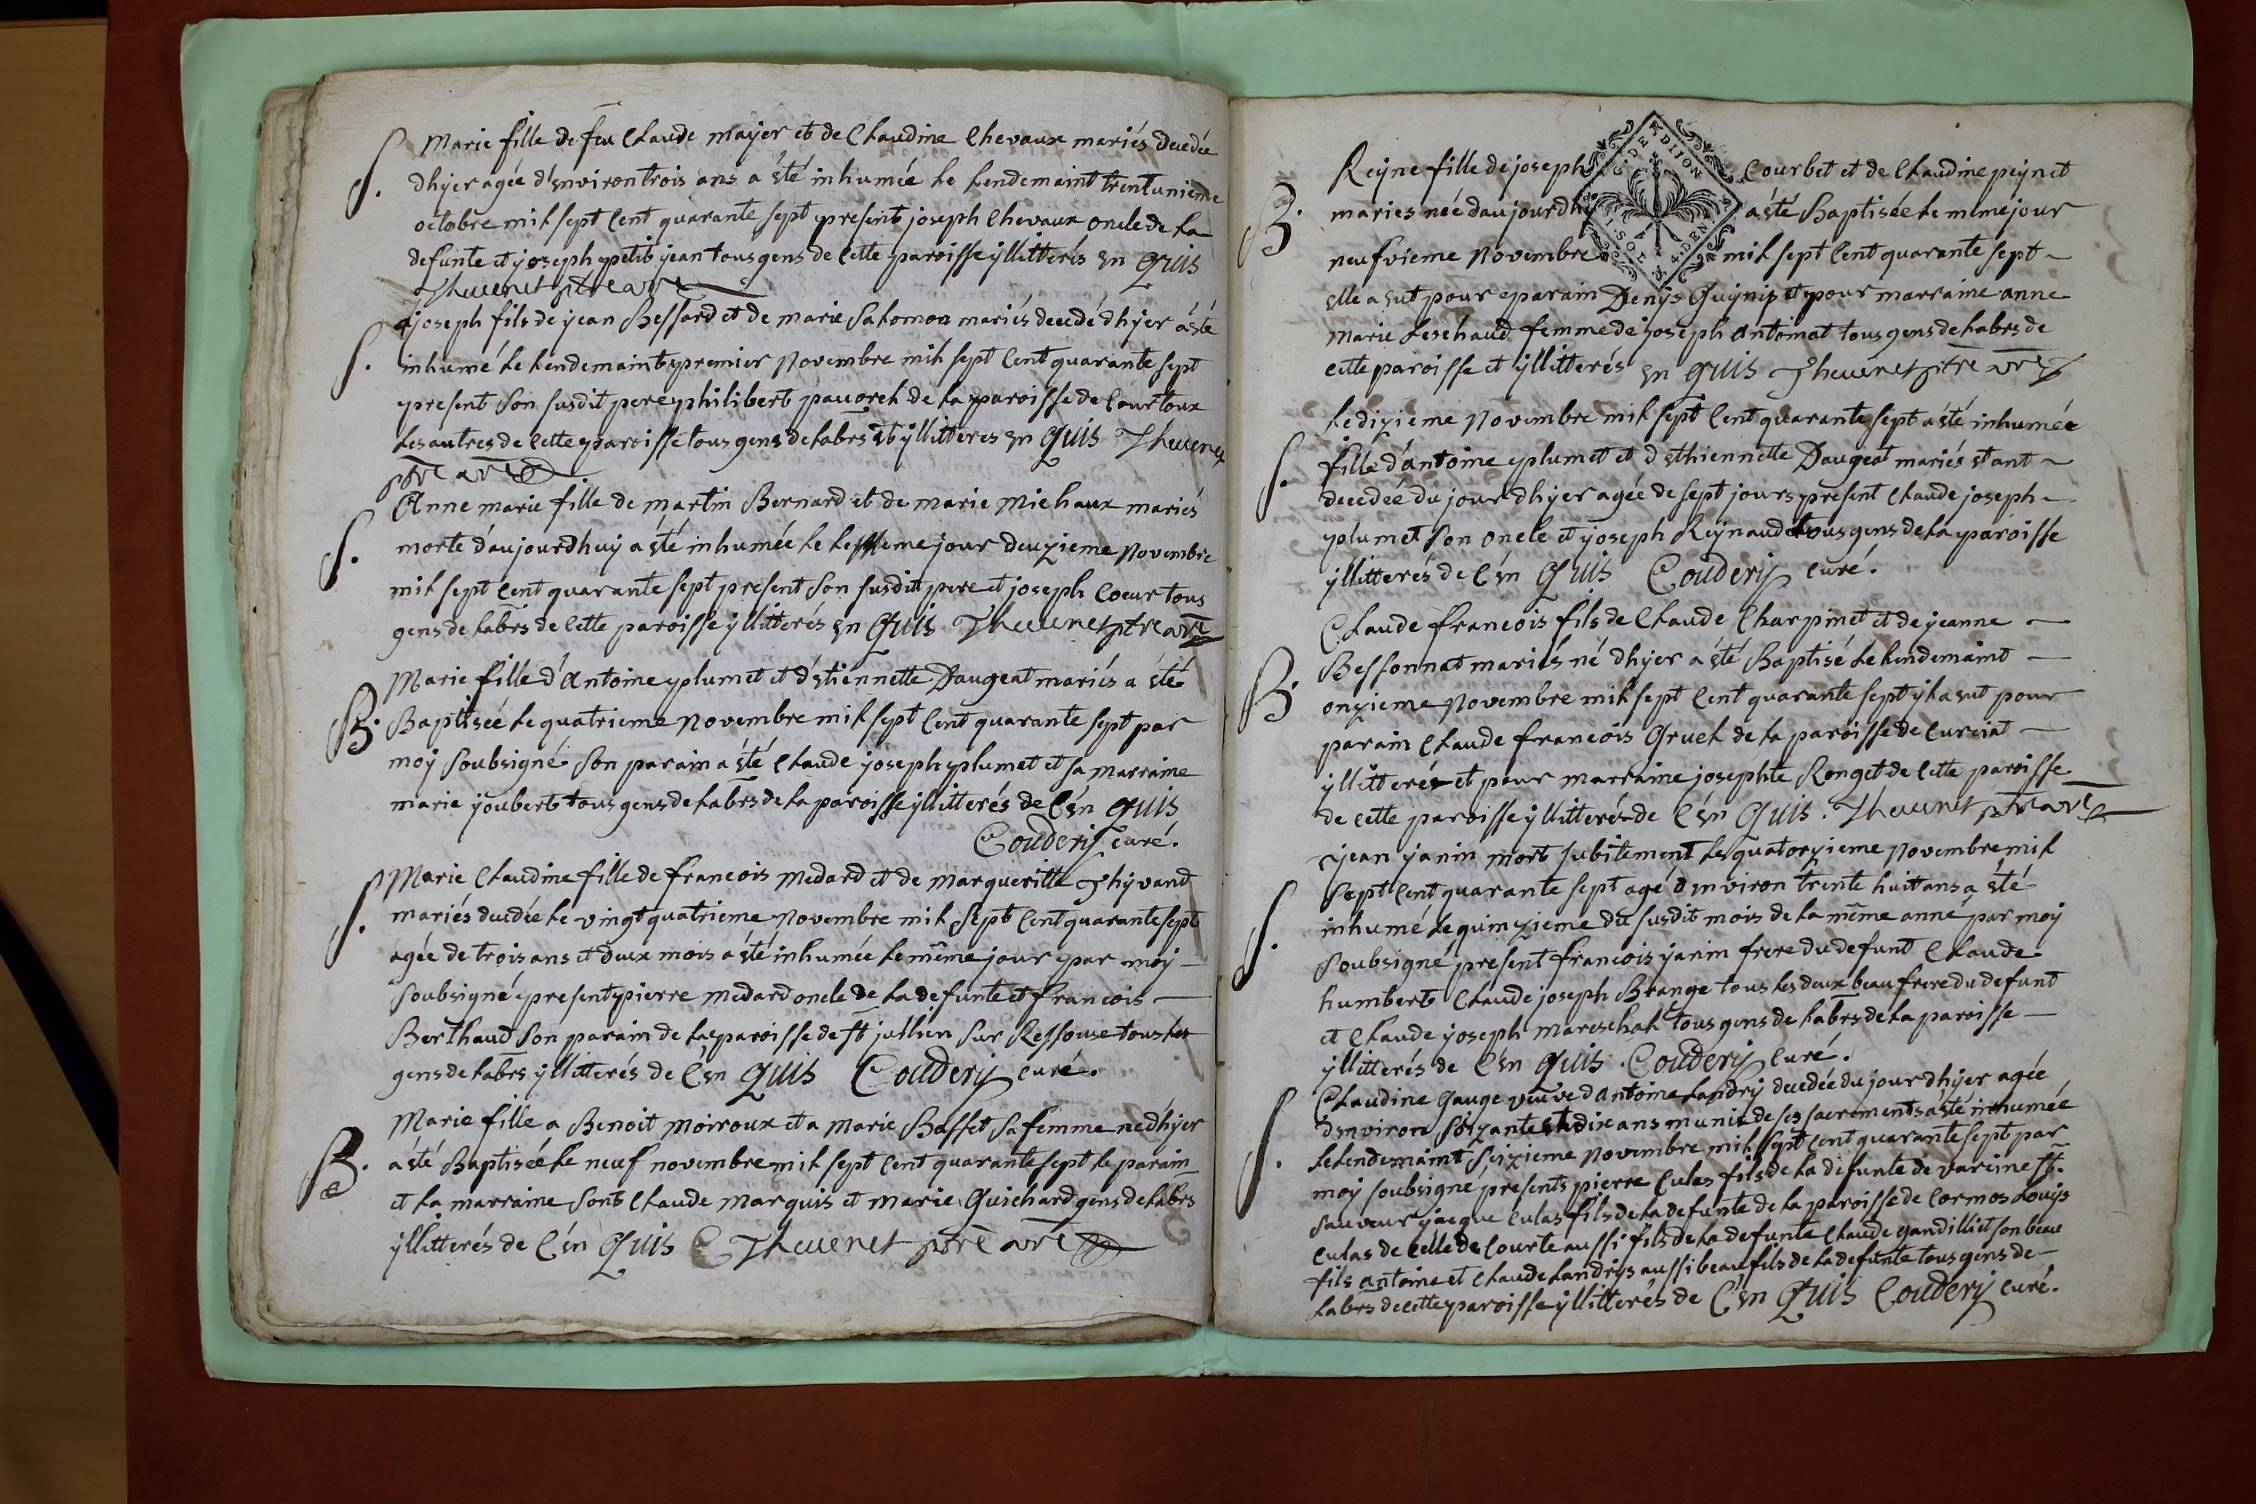 S.
Marie fille de feu Claude mayer et de Claudine Chevaux mariés decedée
dhÿer agée d'environ trois ans a été inhumée le lendemaint trentunieme
octobre mil sept cent quarante sept present joseph Chevaux oncle de la
defunte et joseph petit jean tous gens de cette paroisse ÿllitterés En quis
Thevenet ptre
joseph fils de jean Bessard et de marie Salomon mariés decedé dhÿer a été
S.
inhumé le lendemaint premier Novembre mil sept cent quarante sept
present Son susdit pere philibert pauorel de la paroisse de Courtoux
les autres de cette paroisse tous gens de labrs et ÿllitteres En quis Thevenet
ptre
Anne marie fille de martin Bernard et de marie michaux mariés
S.
morte d'aujourdhuÿ a été inhumée le meme jour deuzieme Novembre
mil sept cent quarante sept present Son susdit pere et joseph Coeur tous
gens de labrs de cette paroisse ÿllitterés En Quis Thevenet ptre
Marie fille d'Antoine plumet et d'étiennette Daugeat mariés a été
B.
Baptisée le quatrieme Novembre mil sept cent quarante sept par
moÿ soubsigné Son parain a été Claude joseph plumet et sa marraine
marie joubert tous gens de labrs de la paroisse ÿllitterés de C'en quis
Couderÿ curé.
S.
Marie Claudine fille de francois medard et de marqueritte Thÿvand
mariés decedée le vingt quatrieme Novembre mil Sept cent quarante sept
agée de trois ans et deux mois a été inhumée le même jour par moÿ
soubsigné present pierre medard oncle de la defunte et francois
Berthaud Son parain de la paroisse de st jullien sur Ressouse tous les
gens de labrs ÿllitterés de C'en quis Couderÿ curé.
Marie fille a Benoit moiroux et a Marie Basset sa femme ne dhÿer
B.
a été Baptisée le neuf novembre mil sept cent quarante sept le parain
et la marraine sont Claude marquis et marie Guichard gens de labrs
ÿllitterés de C'en quis Thevenet ptre
G. DE DIJON
SOL. 4. DEN.
Reÿne fille de joseph Courbet et de Claudine peynet
B.
maries née daujourdhÿ a été Baptisée le meme jour
neufvieme Novembre mil sept cent quarante sept
elle a eut pour parain Denÿs et pour marraine anne
marie Lesehaud femme de joseph antoinat tous gens de labrs de
cette paroisse et ÿllitterés En quis Thevenet ptre
le dizieme Novembre mil sept cent quarante sept a été inhumée
S.
fille d'antoine plumet et d'esthiennette Daugeat mariés etant
decedée du jour dhÿer agée de sept jours present Claude joseph
plumet son oncle et joseph Reÿnaud tous gens de la paroisse
ÿllitterés de C'en quis Couderÿ curé.
Claude francois fils de Claude Charpinet et de jeanne
B.
Bessonnat mariés né dhÿer a été Baptisé le lendemaint
onzieme Novembre mil sept cent quarante sept ÿl a eut pour
parain Claude francois Gruel de la paroisse de Curciat
ÿllitteré et pour marraine josephte Ronget de cette paroisse
de cette paroisse ÿllitterés de C'en Quis. Thevenet ptre
jean janin mort subitement le quatorzieme Novembre mil
S.
Sept cent quarante sept agé d'environ trente huit ans a été
inhumé le quinzieme du susdit mois de la même anné par moÿ
soubsigné present francois janin frere du defunt Claude
humbert Claude joseph Brange tous les deux beau frere du defunt
et Claude joseph mareschal tous gens de labrs de la paroisse
ÿllitterés de C'en quis. Couderÿ curé.
Claudine Gauge veuve d'antoine Landrÿ decedée du jour dhÿer agée
S.
d'environ soizante et dix ans munie de ses sacrements a été inhumée
le lendemaint seizieme Novembre mil sept cent quarante sept par
moÿ soubsigne presents pierre Culas fils de la defunte de vareine st.
sauveur jacque Culas fils de la defunte de la paroisse de Cormos Louÿs
Culas de celle de Courte aussi fils de la defunte Claude gandilliet son beau
fils antoine et Claude Landrÿs aussi beau fils de la defunte tous gens de
labrs de cette paroisse ÿllitterés de C'en Quis Couderÿ curé.